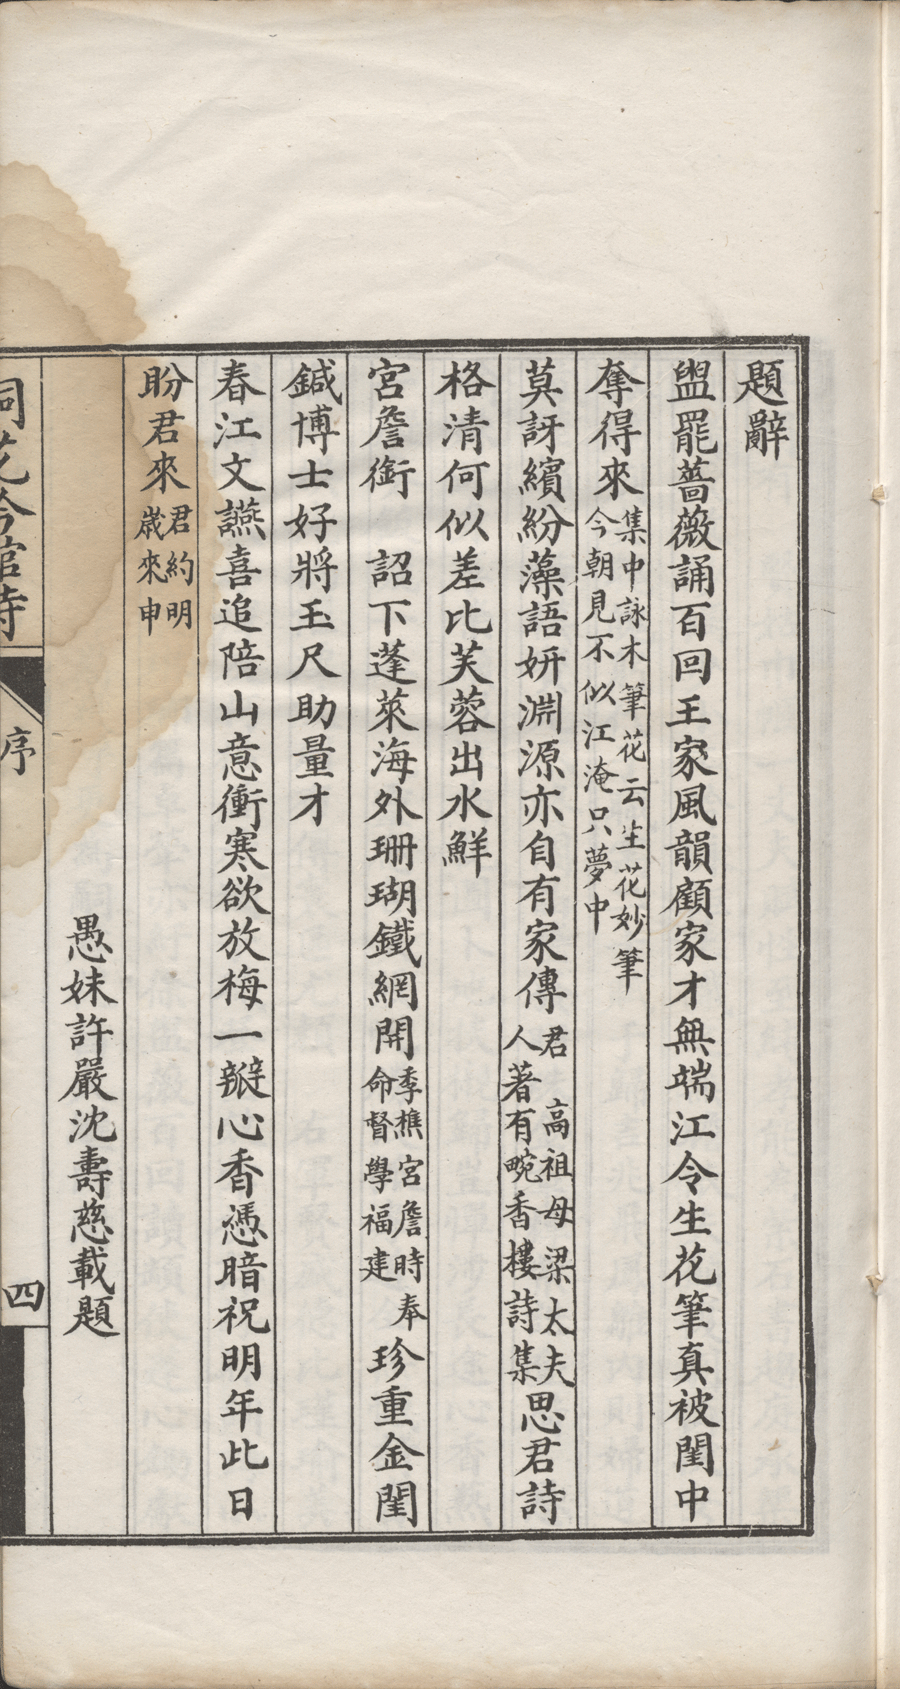 題辭
盥罷薔薇誦百回王家風韻顧家才無端江令生花筆真被閨中
奪得來集中詠木筆花云生花妙筆今朝見不似江淹只夢中
莫訝繽紛藻語妍淵源亦自有家傳君高祖母梁太夫人著有畹香樓詩集思君詩
格清何似差比芙蓉出水鮮
宮詹銜 詔下蓬萊海外珊瑚鐵網開季樵宮詹時奉命督學福建珍重金閨
鍼博士好將玉尺助量才
春江文讌喜追陪山意衝寒欲放梅一瓣心香憑暗祝明年此日
盼君來君約明歲來申
愚妹許嚴沈壽慈載題
桐花吟館詩
序
四